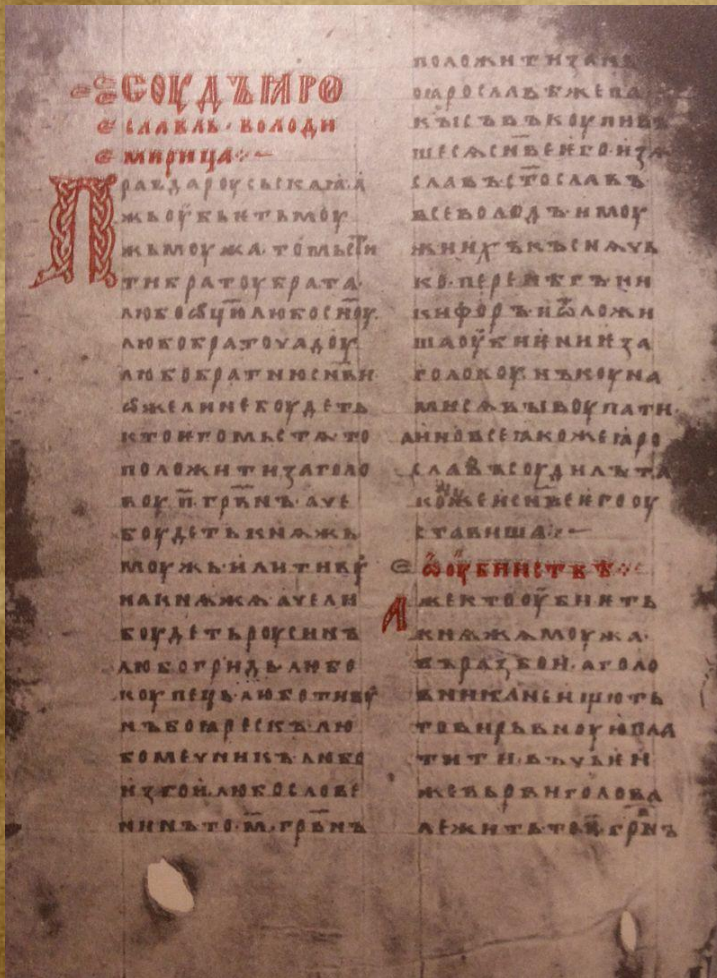 СОУДЪ ꙖРО
СЛАВЛЬ · ВОЛОДИ
МИРИЦА :~
Правда роусьскаꙗ · а
жь оубьѥть моу
жь моужа · то мьсти
ти братоу брата ·
любо ѡц҃ю любо сн҃оу ·
любо братоучадоу ·
любо братню сн҃ви ·
ѡже ли не боудеть
кто ѥго мьстѧ · то
положити за голо
воу · п҃ · грв҃нъ · аче
боудеть кнѧжь
моужь · или тиоу
на кнѧжѧ · аче ли
боудеть роусинъ
любо гридь · любо
коупець · любо тивоу
нъ боꙗрескъ · лю
бо мечникъ · любо
изгои · любо слове
нинъ · то · м҃ · грв҃нъ
положити за нь ·
по ꙗрославѣ же па
кы съвъкоупивъ
шесѧ сн҃ве ѥго · изѧ
славъ · ст҃ославъ ·
всеволодъ · и моу
жи ихъ · къснѧчь
ко · перенѣгъ · ни
кифоръ · и ѡложи
ша оубиѥниѥ за
головоу · нъ коуна
ми сѧ выкоупати ·
а ино все ꙗкоже ꙗро
славъ соудилъ · та
коже и сн҃ве ѥго оу
ставиша :~
Ѡ оубииствѣ :
Аже кто оубиѥть
кнѧжѧ моужа ·
въ разбои · а голо
вника не ищють
то виръвноую пла
тити · въ чьѥи
же вьрви голова
лежить то · п҃ · грв҃нъ